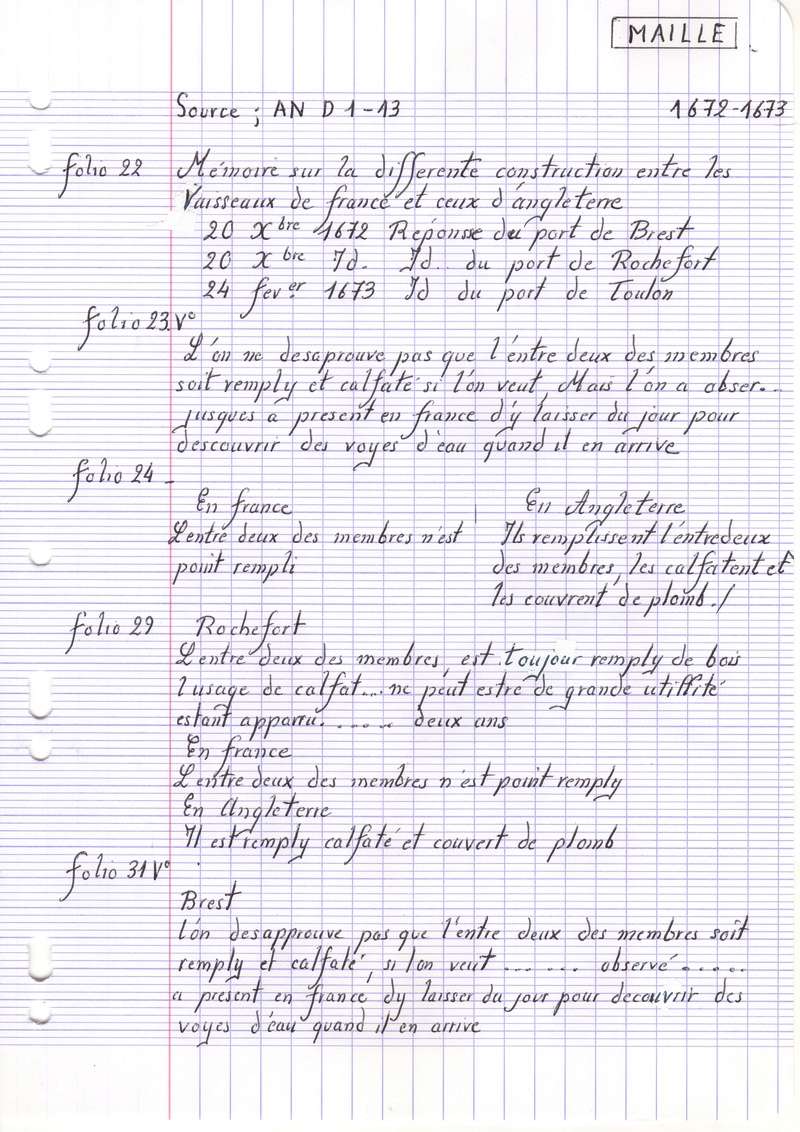 MAILLE
Source ; AN D 1-13 1672-1673
folio 22 Mémoire sur la differente construction entre les
Vaisseaux de france et ceux d'angleterre
20 Xbre 1672 Reponse du port de Brest
20 Xbre Id. Id.. du port de Rochefort
24 fever 1673 Id du port de Toulon
folio 23.V°
L'on ne desaprouve pas que l'entre deux des membres
soit remply et calfaté si l'on veut, Mais l'on a obser...
jusques a present en france d'y laisser du jour pour
descouvrir des voyes d'eau quand il en arrive
folio 24 -
En france En Angleterre
L'entre deux des membres n'est Ils remplissent l'entredeux
point rempli des membres, les calfatent et
les couvrent de plomb./
folio 29 Rochefort
L'entre deux des membres, est toujour remply de bois
l'usage de calfat... ne peut estre de grande utiffité
estant apparru....... deux ans
En france
L'entre deux des membres n'est point remply
En Angleterre
Il est remply calfaté et couvert de plomb
folio 31 V°
Brest
l'on desapprouve pas que l'entre deux des membres soit
remply et calfaté, si lon veut ....... observé.....
a present en france, dy laisser du jour pour decouvrir des
voyes d'eau quand il en arrive